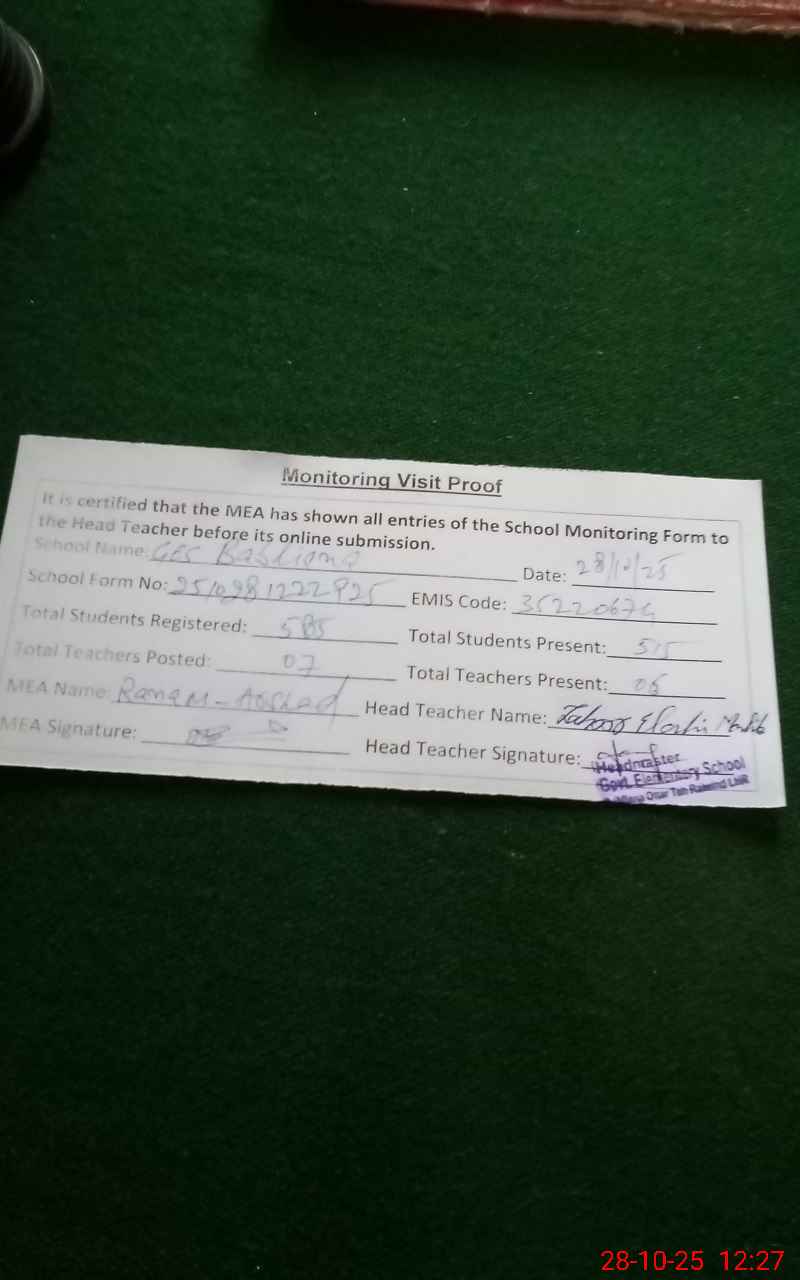 Monitoring Visit Proof
It is certified that the MEA has shown all entries of the School Monitoring Form to
the Head Teacher before its online submission.
School Name: GES Date: 28/10/25
School Form No: EMIS Code:
Total Students Registered: 585 Total Students Present: 515
Total Teachers Posted: 07 Total Teachers Present:
MEA Name: Rana M. Arshad Head Teacher Name:
MEA Signature: Head Teacher Signature:
Headmaster
Govt. Elementary School
28-10-25 12:27